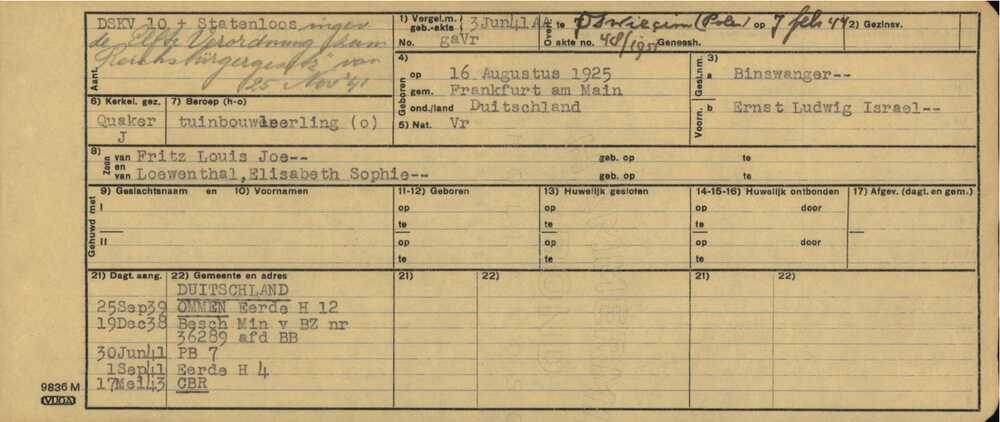 DSKV 10 + Statenloos ingev
de Elfde Verordnung zum
Reichsbürgergesetz van
25 Nov '41
Aant.
1) Vergel.m. geb.-akte { 3Jun'41 AA
No. gaVr
Overl. te (Polen) op 7 feb 44
O akte no. 48/1951 Geneesh.
2) Gezinsv.
4) Geboren
op 16 Augustus 1925
gem. Frankfurt am Main
ond./land Duitschland
5) Nat. Vr
3)
Gesl.nm. a Binswanger--
Voorn. b Ernst Ludwig Israel--
6) Kerkel. gez. 7) Beroep (h-o)
Quaker tuinbouwleerling (o)
J
8) Zoon van Fritz Louis Joe-- geb. op te
en van Loewenthal,Elisabeth Sophie-- geb. op te
9) Geslachtsnaam en 10) Voornamen 11-12) Geboren 13) Huwelijk gesloten 14-15-16) Huwelijk ontbonden 17) Afgev. (dagt. en gem.)
Gehuwd met
I op op op door
te te te
II op op op door
te te te
21) Dagt. aang. 22) Gemeente en adres 21) 22) 21) 22)
DUITSCHLAND
25Sep39 OMMEN Eerde H 12
19Dec38 Besch Min v BZ nr
36289 afd BB
30Jun41 PB 7
1Sep41 Eerde H 4
17Mei43 CBR
9836 M
VUGA